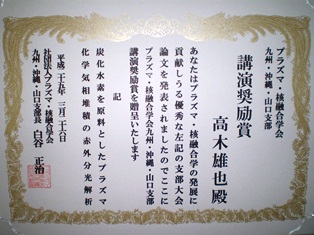 プラズマ・核融合学会
九州・沖縄・山口支部
講演奨励賞
高木雄也殿
あなたはプラズマ・核融合学の発展に
貢献しうる優秀な左記の支部大会
論文を発表されましたのでここに
プラズマ・核融合学会九州・沖縄・山口支部
講演奨励賞を贈呈いたします
記
炭化水素を原料としたプラズマ
化学気相堆積の赤外分光解析
平成二十五年 三月二十六日
社団法人プラズマ・核融合学会
九州・沖縄・山口支部長 白谷 正治